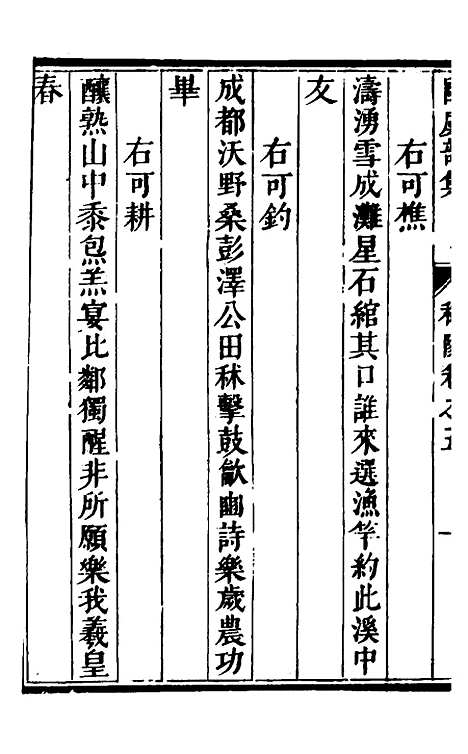 右可樵
濤湧雪成灘星石綰其口誰來選漁竿約此溪中
友
右可釣
成都沃野桑彭澤公田秫擊鼓龡豳詩樂歲農功
畢
右可耕
釀熟山中黍包炰羔宴比鄰獨醒非所願樂我羲皇
春